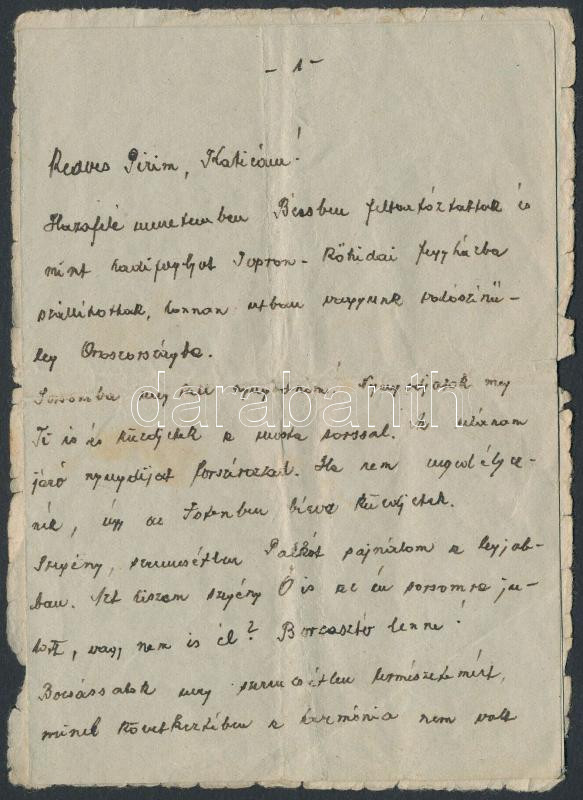 - 1 -
Kedves Pirim, Katicám!
Hazafelé menetemben Bécsben feltartóztattak és
mint hadifoglyot Sopron-Kőhidai fegyházba
szállítottak, honnan utban vagyunk valószinü-
leg Oroszországba.
Sorsomba meg kell nyugodnom. Nyugodjatok meg
Ti is és küzdjetek a mostoha sorssal. A utánam
járó nyugdijat forszirozzad. Ha nem engedélyez-
nék, úgy az Istenben bizva küzdjetek.
Szegény, szerencsétlen Palkót sajnálom a legjob-
ban. Azt hiszem szegény Ő is az én sorsomra ju-
tott, vagy nem is él? Borzasztó lenne!
Bocsássatok meg szerencsétlen természetemért,
minek következtében a harmónia nem volt
darabanth